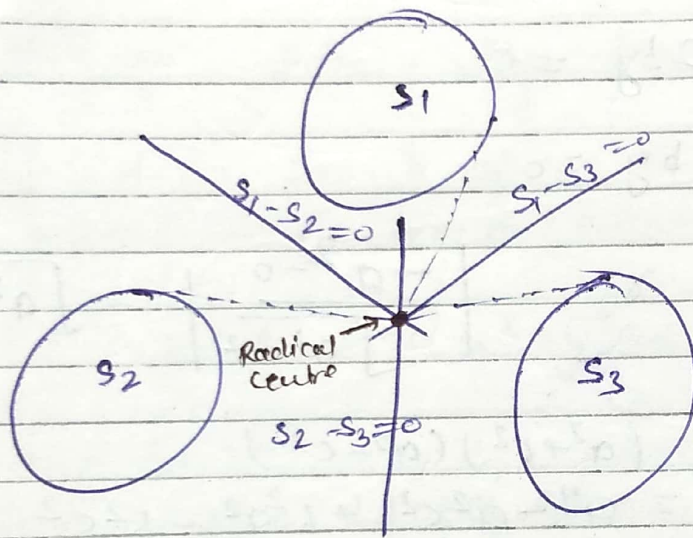 S1
S1 - S2 = 0
S1 - S3 = 0
Radical
centre
S2
S3
S2 - S3 = 0